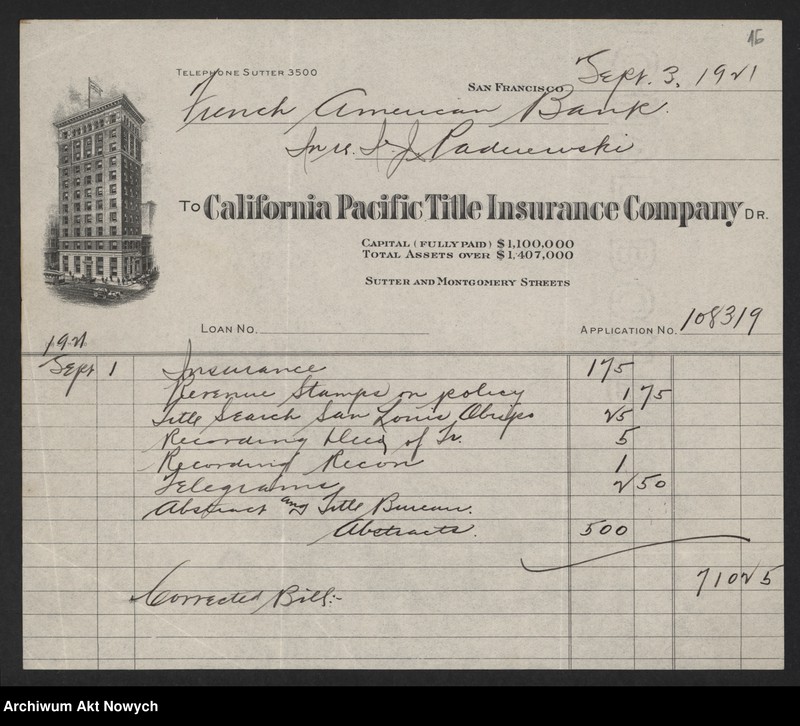 16
TELEPHONE SUTTER 3500
SAN FRANCISCO Sept. 3, 1921
French American Bank.
In re. I. J. Paderewski
TO California Pacific Title Insurance Company DR.
CAPITAL (FULLY PAID) $1,100,000
TOTAL ASSETS OVER $1,407,000
SUTTER AND MONTGOMERY STREETS
LOAN NO. APPLICATION NO. 108319
1921
Sept 1 Insurance 175
Revenue Stamps on policy 1 75
Title Search San Louis Obispo 25
Recording Deed of Tr. 5
Recording Recon 1
Telegrams 2 50
Abstract and Title Bureau.
Abstracts. 500
710 25
Corrected Bill:-
Archiwum Akt Nowych